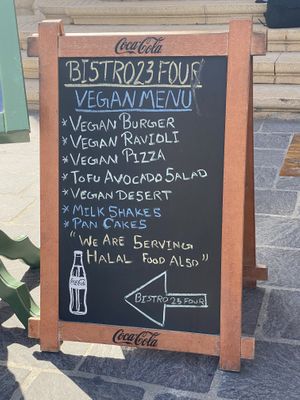 Coca-Cola
BISTRO23 FOUR
VEGAN MENU
* VEGAN BURGER
* VEGAN RAVIOLI
* VEGAN PIZZA
* TOFU AVOCADO SALAD
* VEGAN DESERT
* MILK SHAKES
* PAN CAKES
"WE ARE SERVING
HALAL FOOD ALSO"
Coca-Cola
BISTRO 23 FOUR
Coca-Cola